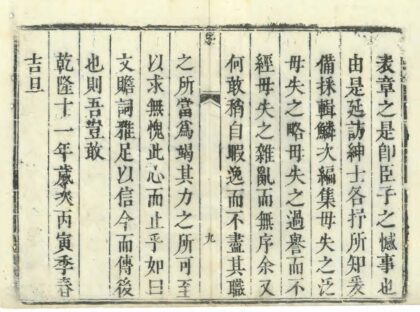 表章之是卽臣子之憾事也
由是延訪紳士各抒所知爰
備採輯鱗次編集毋失之泛
毋失之略毋失之過譽而不
經毋失之雜亂而無序余又
何敢稍自暇逸而不盡其職
九
之所當爲竭其力之所可至
以求無愧此心而止乎如曰
文贍詞雅足以信今而傳後
也則吾豈敢
乾隆十一年歲次丙寅季春
吉旦